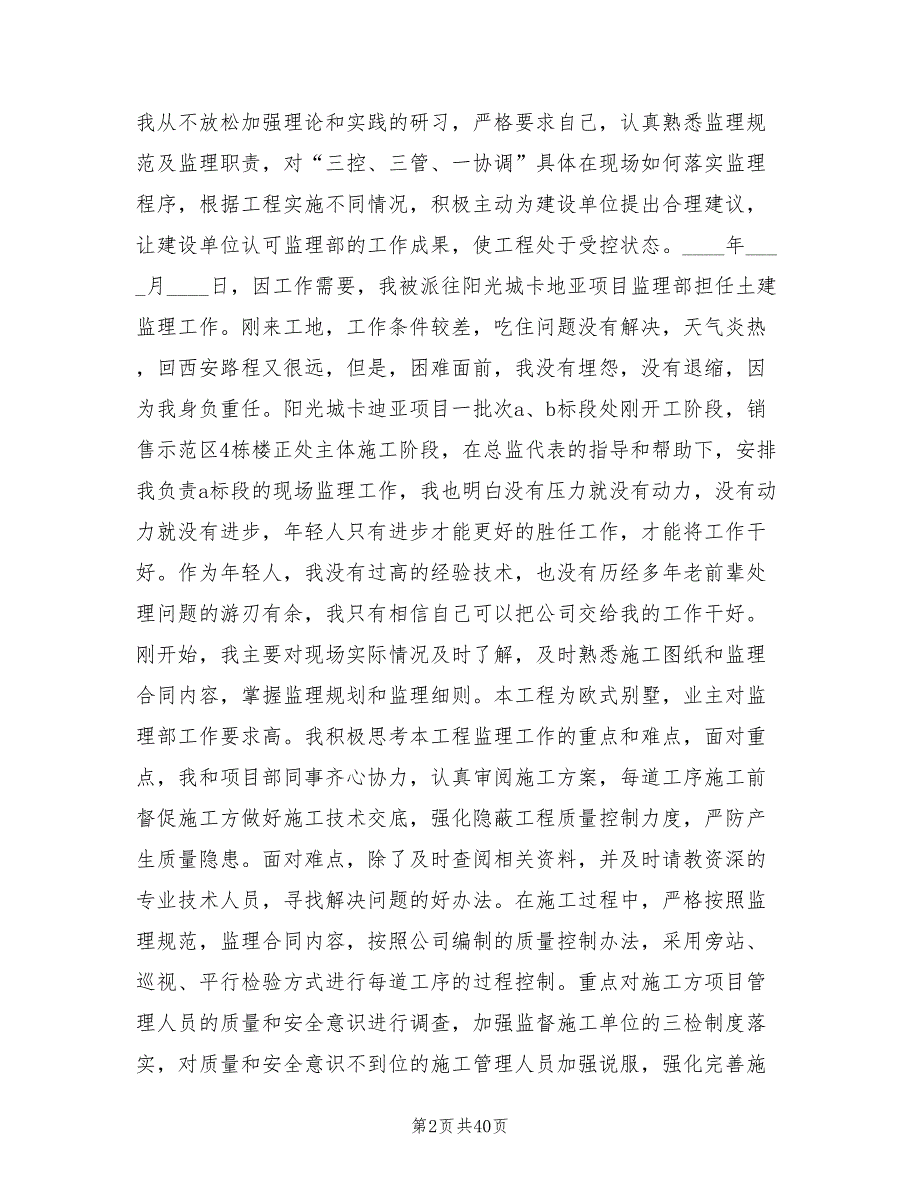 我从不放松加强理论和实践的研习，严格要求自己，认真熟悉监理规
范及监理职责，对“三控、三管、一协调”具体在现场如何落实监理
程序，根据工程实施不同情况，积极主动为建设单位提出合理建议，
让建设单位认可监理部的工作成果，使工程处于受控状态。____年___
_月____日，因工作需要，我被派往阳光城卡地亚项目监理部担任土建
监理工作。刚来工地，工作条件较差，吃住问题没有解决，天气炎热
，回西安路程又很远，但是，困难面前，我没有埋怨，没有退缩，因
为我身负重任。阳光城卡迪亚项目一批次a、b标段处刚开工阶段，销
售示范区4栋楼正处主体施工阶段，在总监代表的指导和帮助下，安排
我负责a标段的现场监理工作，我也明白没有压力就没有动力，没有动
力就没有进步，年轻人只有进步才能更好的胜任工作，才能将工作干
好。作为年轻人，我没有过高的经验技术，也没有历经多年老前辈处
理问题的游刃有余，我只有相信自己可以把公司交给我的工作干好。
刚开始，我主要对现场实际情况及时了解，及时熟悉施工图纸和监理
合同内容，掌握监理规划和监理细则。本工程为欧式别墅，业主对监
理部工作要求高。我积极思考本工程监理工作的重点和难点，面对重
点，我和项目部同事齐心协力，认真审阅施工方案，每道工序施工前
督促施工方做好施工技术交底，强化隐蔽工程质量控制力度，严防产
生质量隐患。面对难点，除了及时查阅相关资料，并及时请教资深的
专业技术人员，寻找解决问题的好办法。在施工过程中，严格按照监
理规范，监理合同内容，按照公司编制的质量控制办法，采用旁站、
巡视、平行检验方式进行每道工序的过程控制。重点对施工方项目管
理人员的质量和安全意识进行调查，加强监督施工单位的三检制度落
实，对质量和安全意识不到位的施工管理人员加强说服，强化完善施
第2页共40页